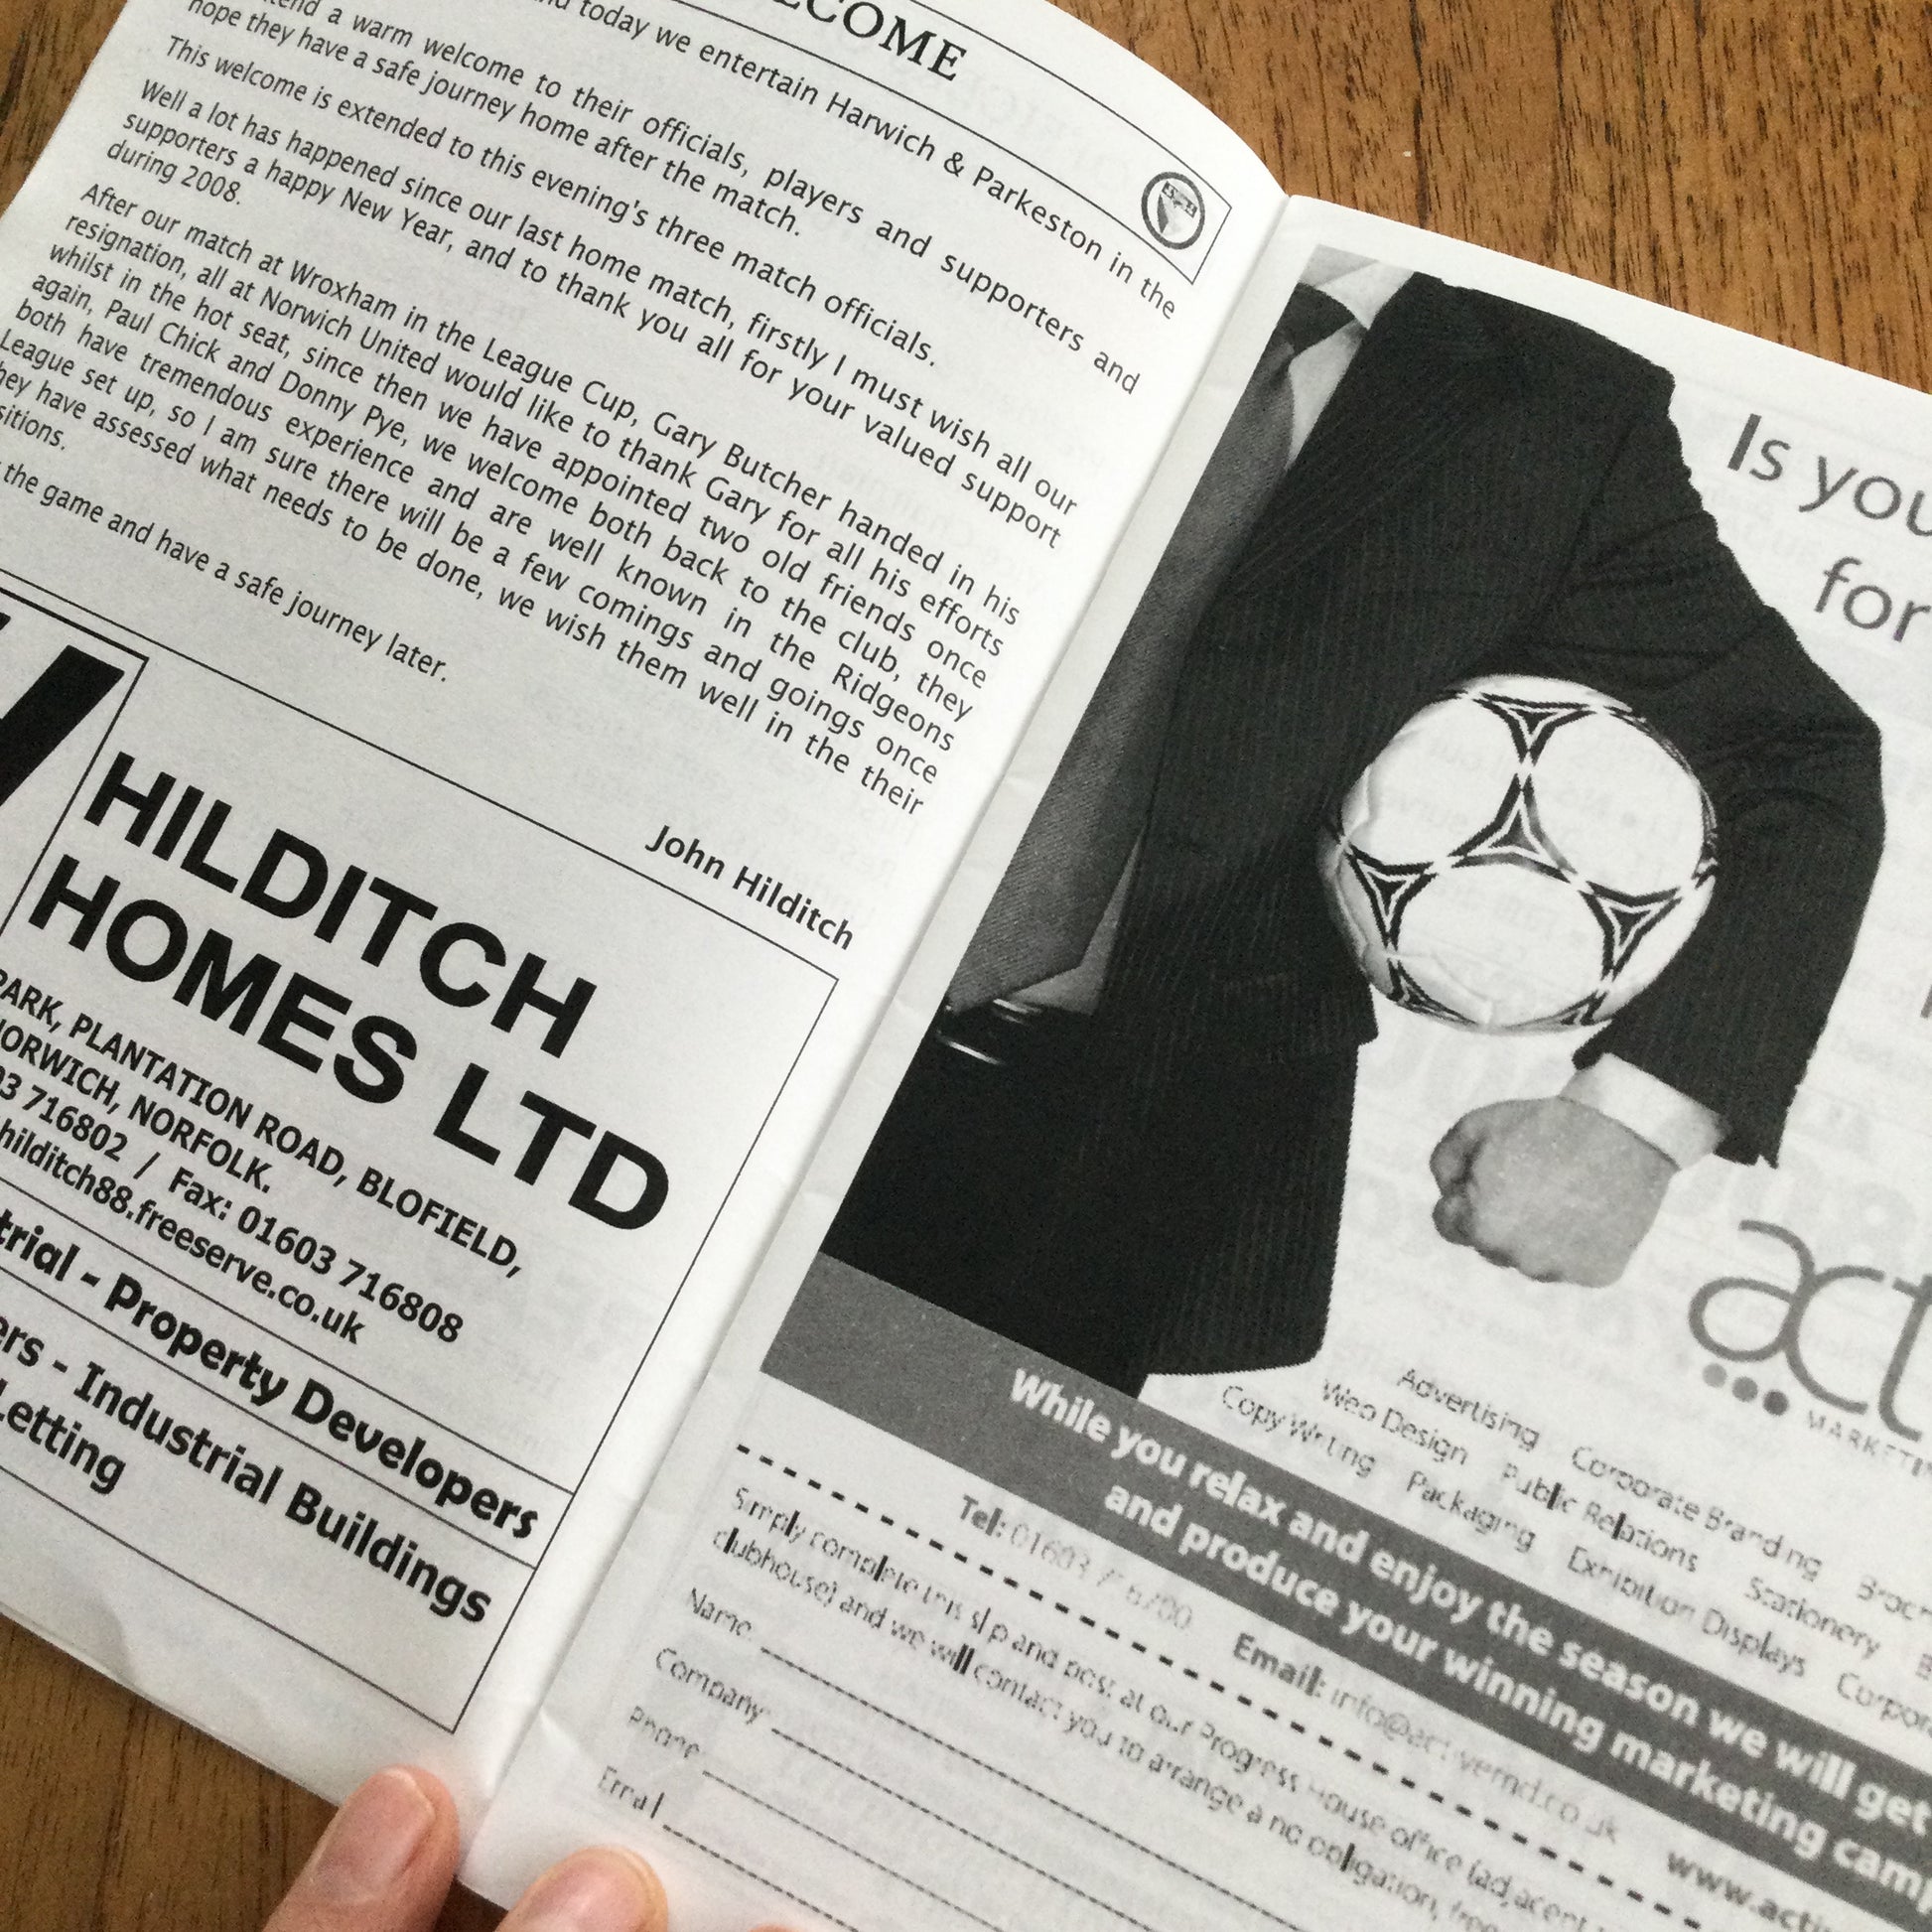 today we entertain Harwich & Parkeston in the
a warm welcome to their officials, players and supporters and
hope they have a safe journey home after the match.
This welcome is extended to this evening's three match officials.
Well a lot has happened since our last home match, firstly I must wish all our
supporters a happy New Year, and to thank you all for your valued support
during 2008.
After our match at Wroxham in the League Cup, Gary Butcher handed in his
resignation, all at Norwich United would like to thank Gary for all his efforts
whilst in the hot seat, since then we have appointed two old friends once
again, Paul Chick and Donny Pye, we welcome both back to the club, they
both have tremendous experience and are well known in the Ridgeons
League set up, so I am sure there will be a few comings and goings once
they have assessed what needs to be done, we wish them well in the their
the game and have a safe journey later.
John Hilditch
HILDITCH
HOMES LTD
PARK, PLANTATION ROAD, BLOFIELD,
NORWICH, NORFOLK.
716802 / Fax: 01603 716808
hilditch88.freeserve.co.uk
- Property Developers
- Industrial Buildings
Letting
Is
for
act
MARKETIN
Advertising Corporate Branding
Web Design Public Relations Stationery
Copy Writing Packaging Exhibition Displays
While you relax and enjoy the season we will get
and produce your winning marketing
Tel: 01603 Email: info@activemd.co.uk
Simply complete this slip and post at our Progress House office (adjacent
clubhouse) and we will contact you to arrange a no obligation,
Name
Company
Phone
Email